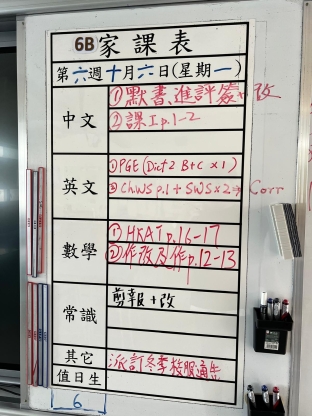 6B家課表
第六週十月六日(星期一)
中文
①默書、進評簽+改
②課工p.1-2
英文
①PGE (Dict2 B+C x1)
②Ch.WS p.1 + SWS x2 → Corr
數學
①HKAT p.16-17
②作改及作p.12-13
常識
剪報+改
其它
派訂冬季校服通告
值日生
6